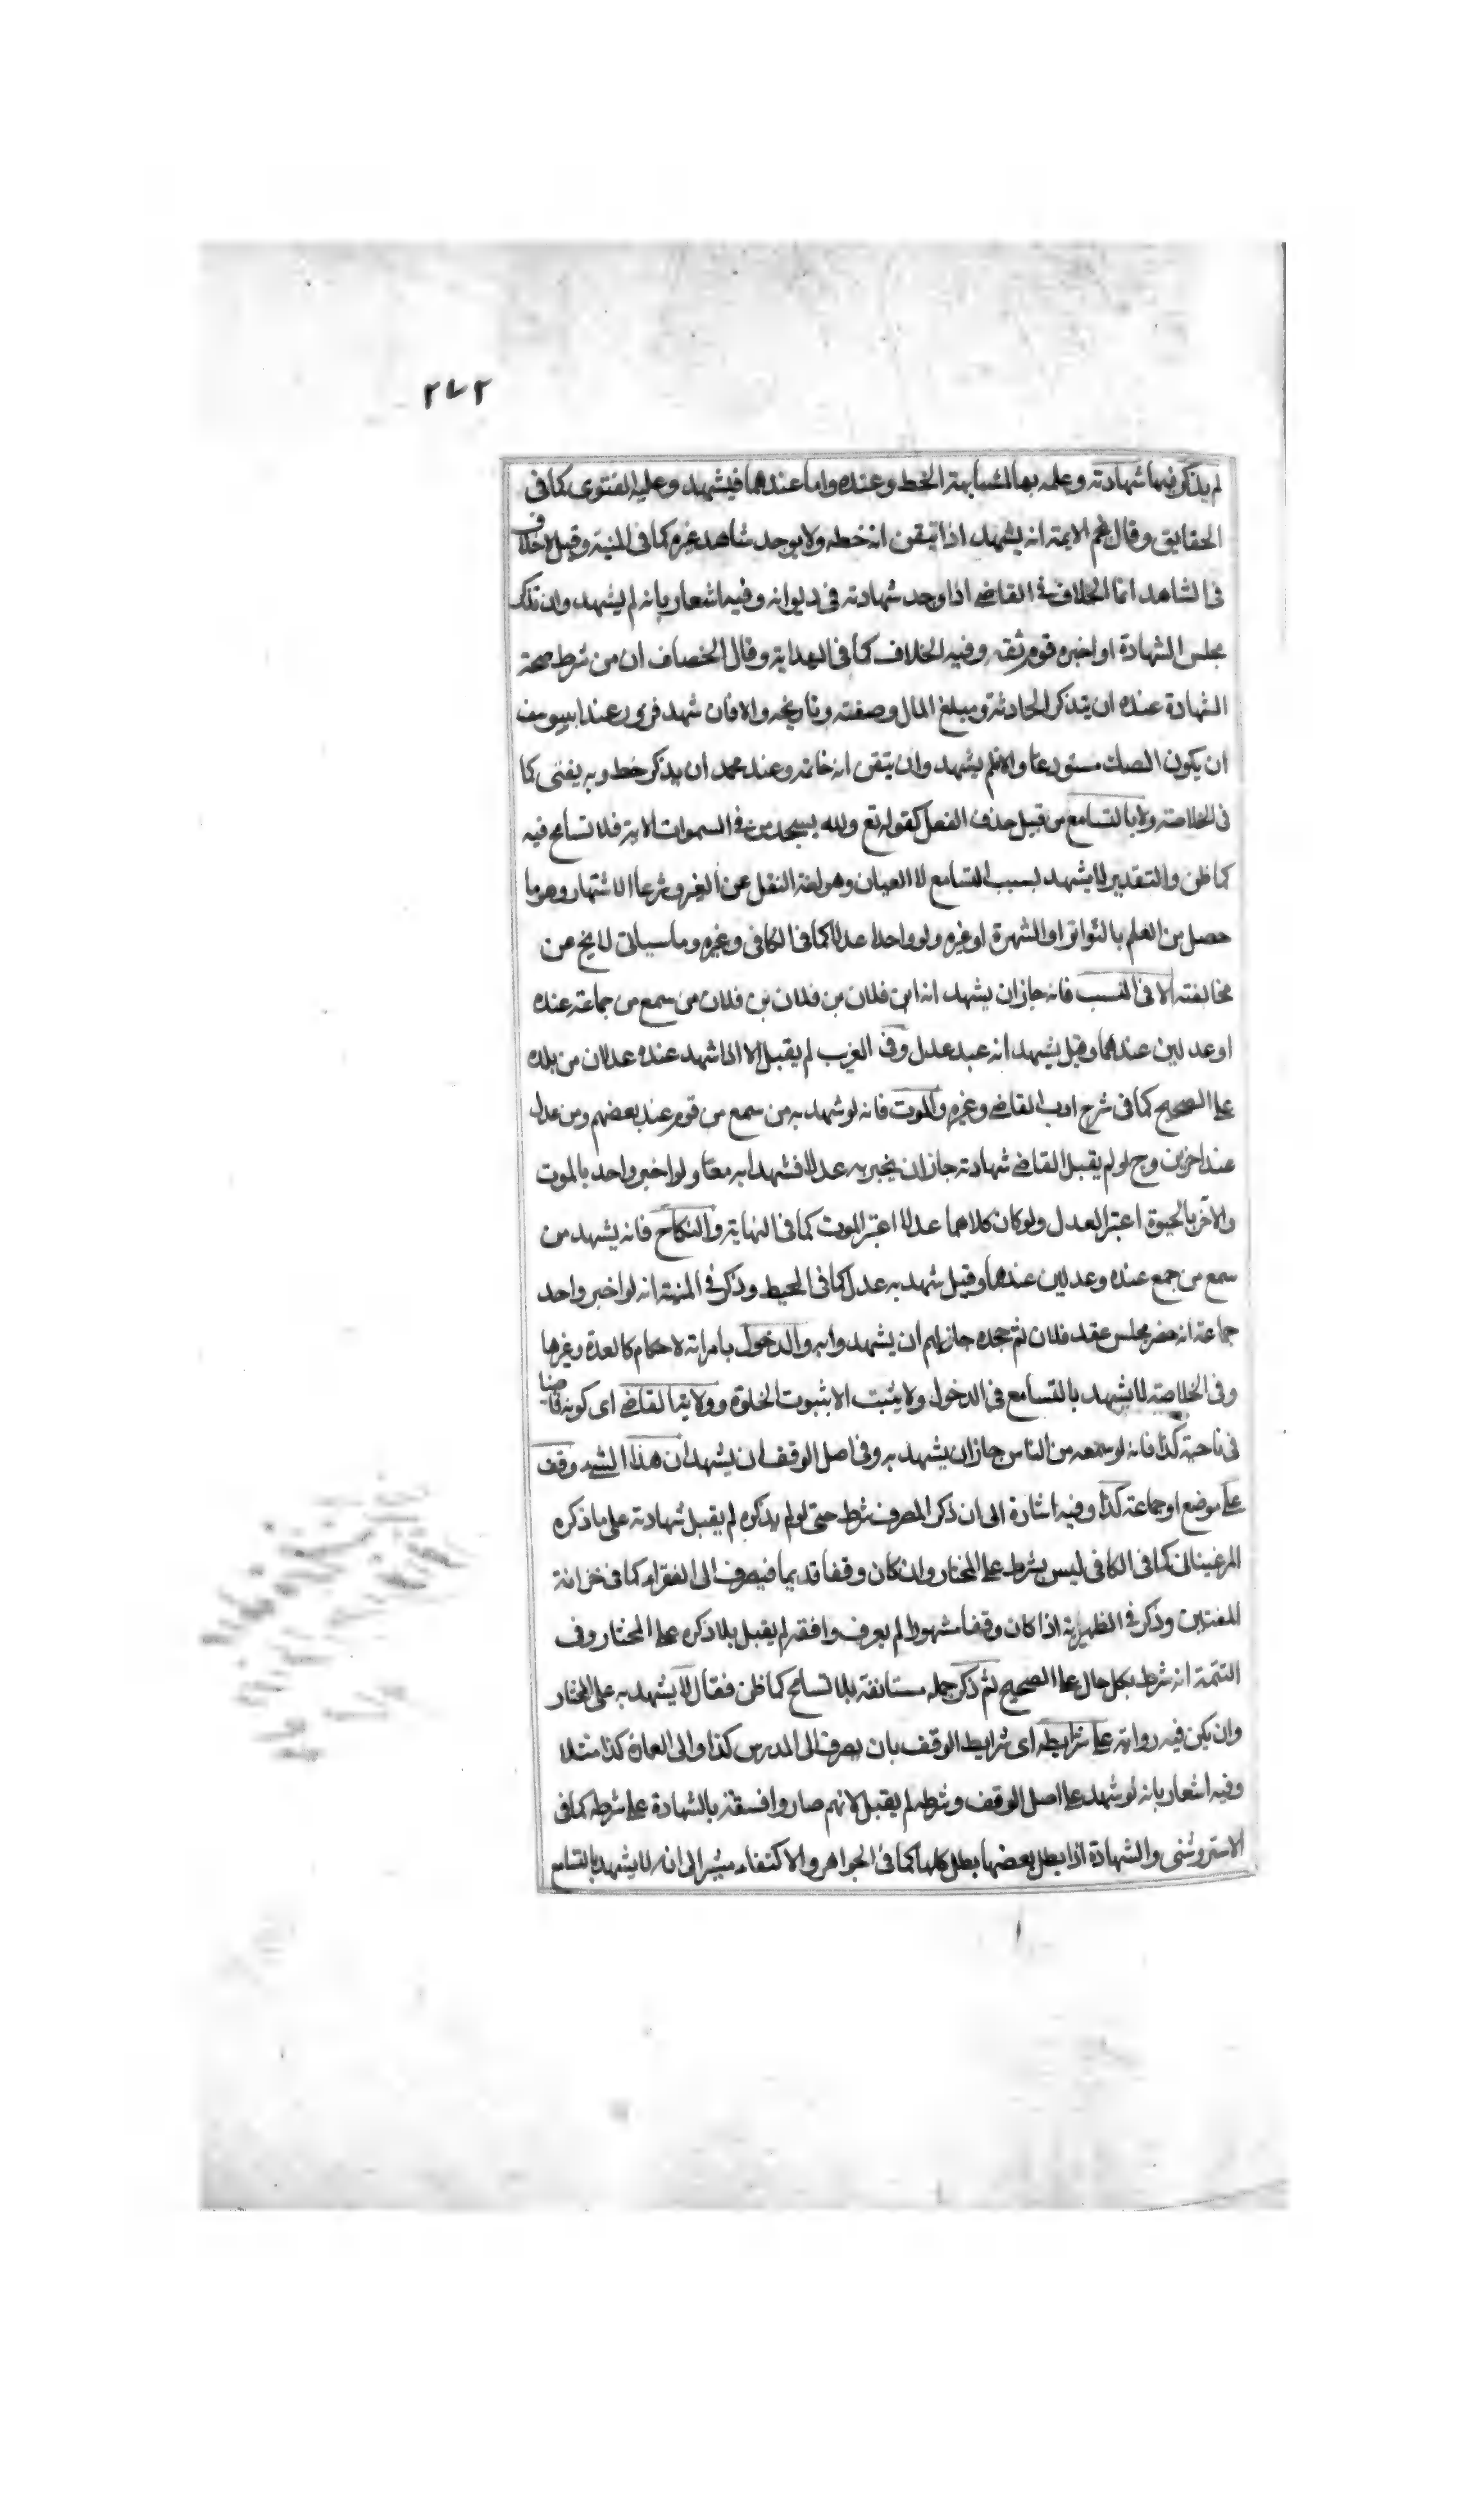 ٢٧٢
لم يذكر فيها شهادته وعلمه بها لمشابهة الخط وعنده واما عندهما فيشهد وعليه الفتوى كما فى
الحقايق وقال نجم الايمة انه يشهد اذا تيقن انه خطه ولا يوجد شاهد غيره كما فى المنية وقيل لا خلاف
فى الشاهد انما الخلاف فى القاضى اذا وجد شهادته فى ديوانه وفيه اشعار بانه لم يشهد وان تذكر
مجلس الشهادة او اخبره قوم ثقة وفيه الخلاف كما فى الهداية وقال الخصاف ان من شرط صحة
الشهادة عنده ان يتذكر الحادثة ومبلغ المال وصفته وتاريخه والا فان شهد فزور عند ابيوسف
ان يكون الصك مستودعا والا فلم يشهد وان يتقى انه خاتمه وعند محمد ان يذكر خط وبه يفتى كما
فى الخلاصة ولا بالتسامع من قبيل حذف الفعل كقوله تع ولله يسجد من فى السموات الاية فلا تسامح فيه
كما ظن والتقدير لا يشهد بسبب التسامع لا العيان وهو لغة النقل عن الغير وشرعا الاشتهار وهو ما
حصل من العلم بالتواتر او الشهرة او غيره ولو واحدا عدلا كما فى الكافى وغيره وما سياتى لا يخ عن
مخالفته الا فى النسب فانه جاز ان يشهد انه ابن فلان من فلان بن فلان من سمع من جماعة عنده
او عدلين عندهما وقيل يشهد انه عبد عدل وفى الغريب لم يقبل الا اذا شهد عنده عدلان من بلده
على الصحيح كما فى شرح ادب القاضى وغيره والموت فانه لو شهد به من سمع من قوم عند بعضهم ومن عدل
عند اخرين وح لو لم يقبل القاضى شهادته جاز ان يخبر به عدلا فشهدا به معا ولو اخبر واحد بالموت
والآخر بالحيوة اعتبر العدل ولو كان كلاهما عدلا اعتبر الموت كما فى النهاية والنكاح فانه يشهد من
سمع من جمع عنده وعدلين عندهما وقيل شهد به عدل كما فى المحيط وذكر فى المنية انه لو اخبر واحد
جماعة انه حضر مجلس عقد فلان ثم جحده جاز لهم ان يشهدوا به والدخول بامراته لاحكام كالعدة وغيرها
وفى الخلاصة لا يشهد بالتسامع فى الدخول ولا يثبت الا بثبوت الخلوة وولاية القاضى اى كونه قاضيا
فى ناحية كذا فانه لو سمعه من الناس جاز ان يشهد به وفى اصل الوقف ان يشهد ان هذا الشىء وقف
على موضع او جماعة كذا وفيه اشارة الى ان ذكر المصرف شرط حتى لو لم يذكره لم يقبل شهادته على ما ذكره
المرغينانى كما فى الكافى ليس بشرط على المختار وان كان وقفا قديما فيصرف الى الفقراء كما فى خزانة
المفتيين وذكر فى الظهيرية اذا كان وقفا مشهورا لم يعرف واقفه لم يقبل بلا ذكره على المختار وفى
التتمة انه شرط بكل حال على الصحيح ثم ذكر جمله مستانفة بلا تسامح كما ظن فقال لا يشهد به على المختار
وان يكن فيه رواية على شرايطه اى شرايط الوقف بان يصرف الى المدرس كذا والى العمارة كذا مثلا
وفيه اشعار بانه لو شهد على اصل الوقف وشرطه لم يقبل لانهم صاروا فسقة بالشهادة على شرطه كما فى
الاستروشنى والشهادة اذا بطل بعضها بطل كلها كما فى الجواهر والاكتفاء مشير الى انه لا يشهد بالتسامع